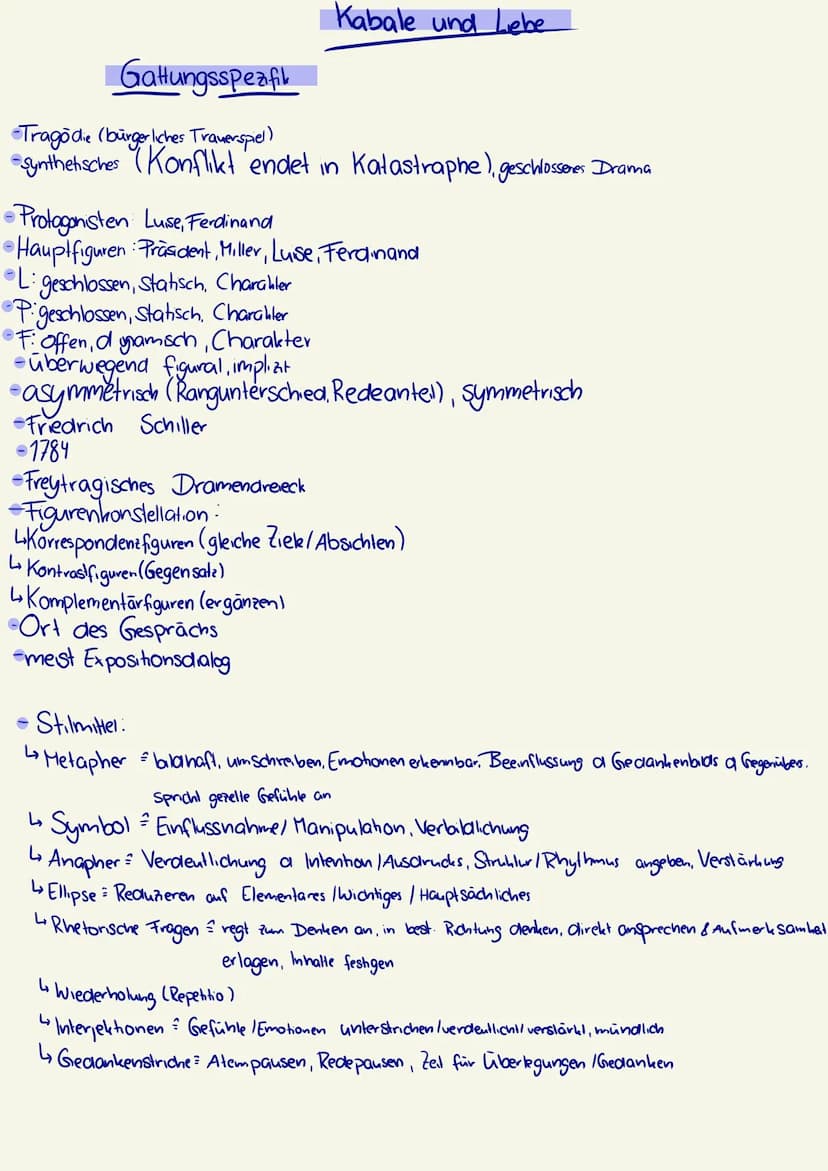 Kabale und Liebe
Gattungsspezifik
-Tragödie (bürgerliches Trauerspiel)
-synthetisches (Konflikt endet in Katastrophe), geschlossenes Drama
-Protagonisten: Luise, Ferdinand
-Hauptfiguren: Präsident, Miller, Luise, Ferdinand
-L: geschlossen, statisch, Charakter
-P: geschlossen, statisch, Charakter
-F: offen, dynamisch, Charakter
-überwiegend figural, implizit
-asymmetrisch (Rangunterschied, Redeanteil), symmetrisch
-Friedrich Schiller
-1784
-Freytragisches Dramendreieck
-Figurenkonstellation:
↳Korrespondenzfiguren (gleiche Ziele/Absichten)
↳Kontrastfiguren (Gegensatz)
↳Komplementärfiguren (ergänzen)
-Ort des Gesprächs
-meist Expositionsdialog
- Stilmittel:
↳Metapher ≙ bildhaft, umschreiben, Emotionen erkennbar, Beeinflussung d Gedankenbilds d Gegenübers.
spricht gezielte Gefühle an
↳ Symbol ≙ Einflussnahme/Manipulation, Verbildlichung
↳ Anapher ≙ Verdeutlichung d Intention/Ausdrucks, Struktur/Rhythmus angeben, Verstärkung
↳Ellipse ≙ Reduzieren auf Elementares/Wichtiges/Hauptsächliches
↳Rhetorische Fragen ≙ regt zum Denken an, in best. Richtung denken, direkt ansprechen & Aufmerksamkeit
erlagen, Inhalte festigen
↳Wiederholung (Repetitio)
↳Interjektionen ≙ Gefühle/Emotionen unterstrichen/verdeutlicht/verstärkt, mündlich
↳Gedankenstriche ≙ Atempausen, Redepausen, Zeit für Überlegungen/Gedanken